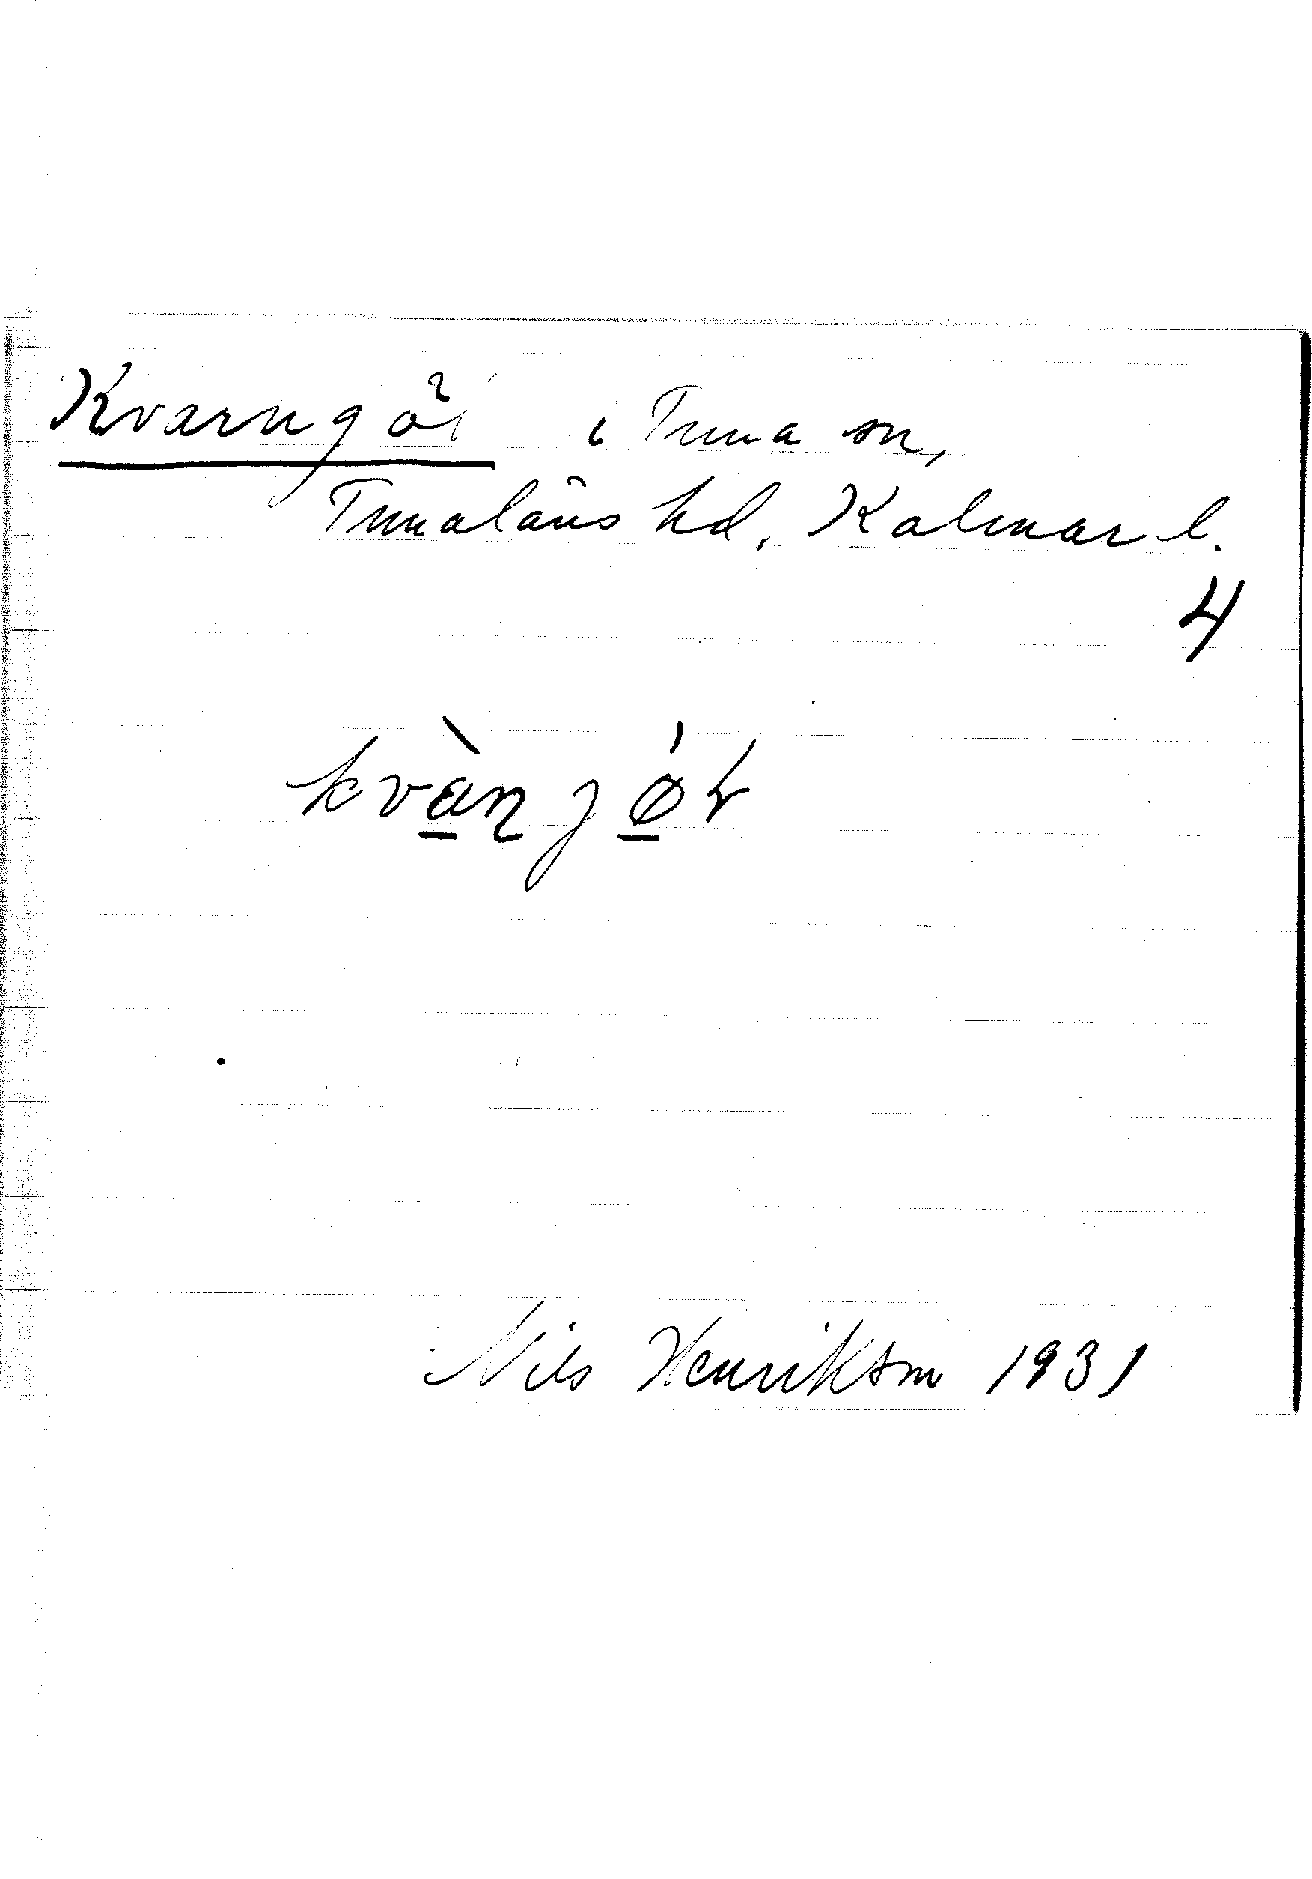 Kvarngöl i Tuna sn,
Tunaläns hd, Kalmar l.
4
Nils Henrikson 1931